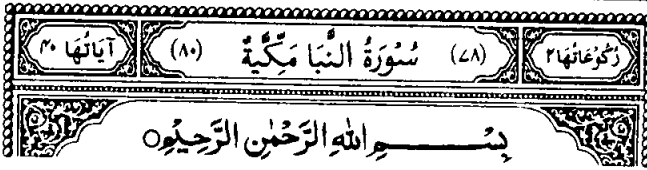 رُكُوعَاتُهَا ٢ (٧٨) سُوْرَةُ النَّبَاِ مَكِّيَّةٌ (٨٠) اٰيَاتُهَا ٤٠
بِسْمِ اللهِ الرَّحْمٰنِ الرَّحِيْمِ ○